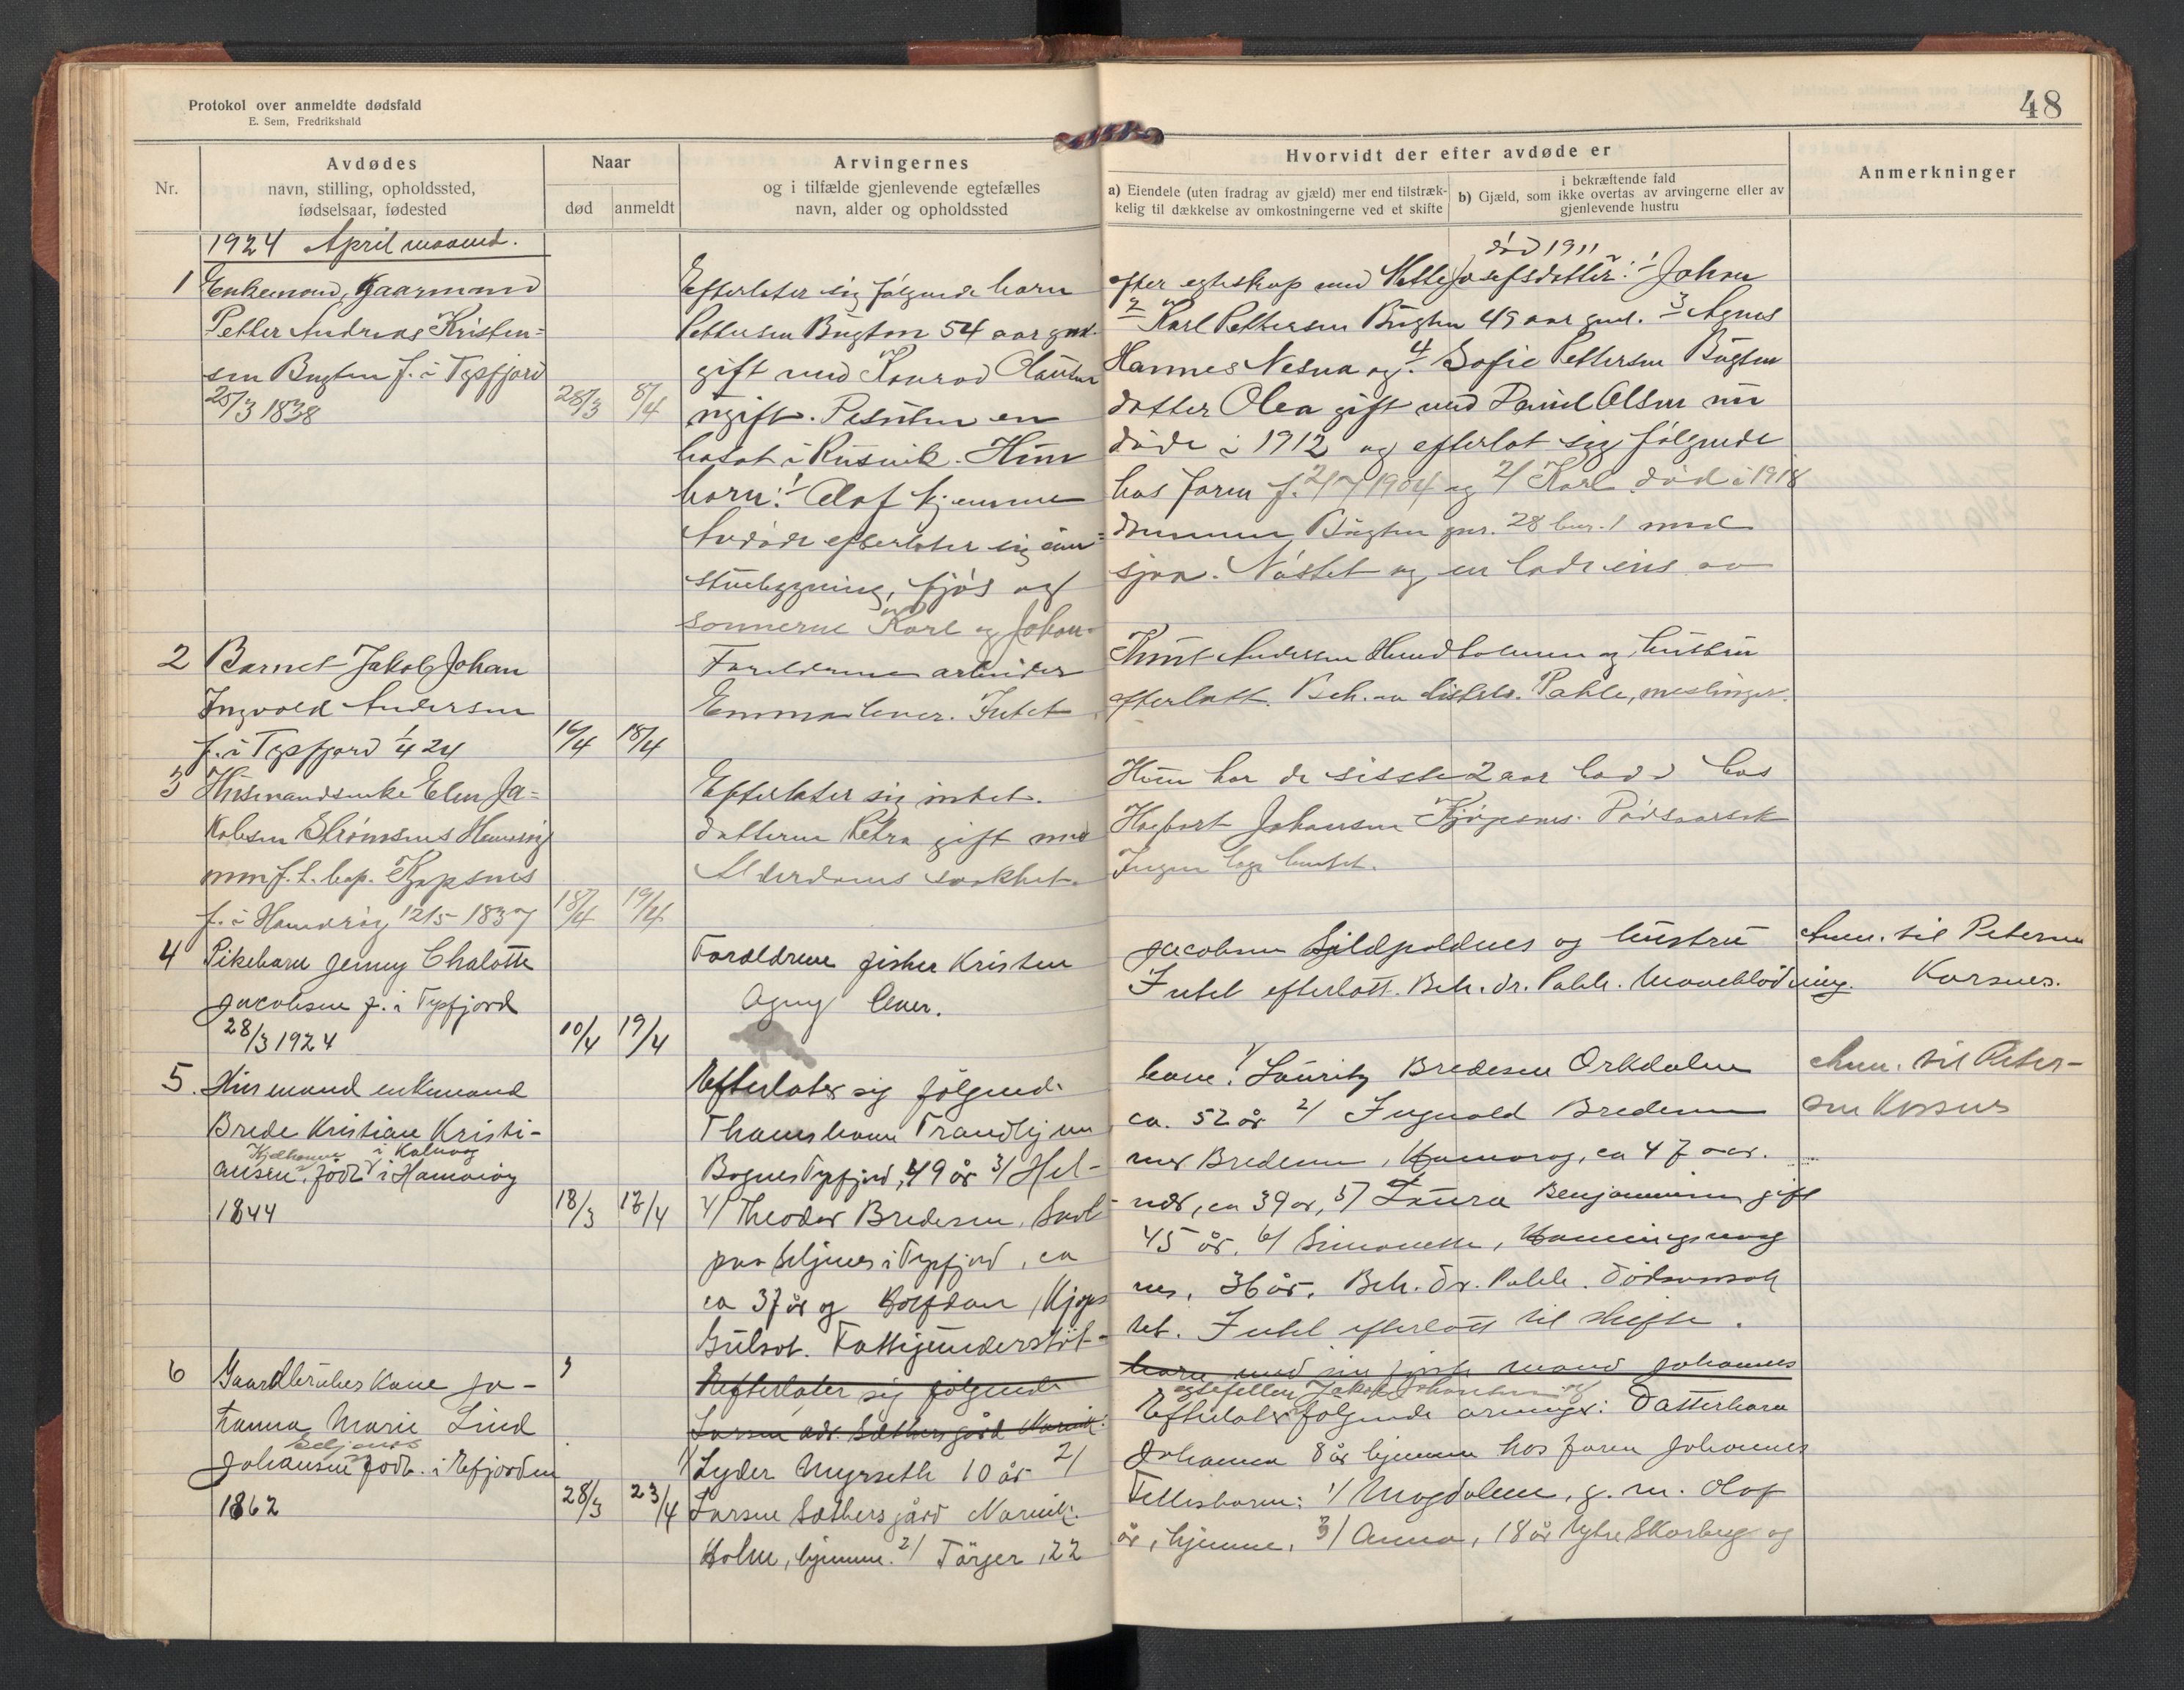 Protokol over anmeldte dødsfald
E. Sem, Fredrikshald
48
Nr.
Avdødes
navn, stilling, opholdssted,
fødselsaar, fødested
Naar
død
anmeldt
Arvingernes
og i tilfælde gjenlevende egtefælles
navn, alder og opholdssted
Hvorvidt der efter avdøde er
a) Eiendele (uten fradrag av gjæld) mer end tilstræk-
kelig til dækkelse av omkostningerne ved et skifte
i bekræftende fald
b) Gjæld, som ikke overtas av arvingerne eller av
gjenlevende hustru
Anmerkninger
1924 April maaned.
1 Enkemand, Gaarmand
Petter Andreas Kristen=
sen Bugten f. i Tysfjord
25/3 1838 28/3 8/4
Efterlater sig følgende barn
Pettersen Bugten 54 aar gml.
gift med Konrad
ugift. en
bosat i Rusvik. Hun
barn: 1 Olaf hjemme
Avdøde efterlater sig
stuebygning, fjøs og
sønnerne Karl og Johan.
død 1911
efter egteskap med Mette Josefsdatter: 1 Johan
2 Karl Pettersen Bugten 49 aar gml. 3 Agnes
Hannes Nesna og 4 Sofie Pettersen Bugten
datter Olea gift med Daniel Olsen
døde i 1912 og efterlot sig følgende
hos faren f. 2/7 1904 og 2/ Karl død i 1918
Bugten gnr. 28 bnr. 1 med
sjøa. Nøstet og en lade eies av
2 Barnet Jakob Johan
Ingvald Andersen
f. i Tysfjord 1/4 24 16/4 18/4
Forældrene arbeider
Emma lever. Intet
Knut Andersen Hundholmen og hustru
efterlatt. Beh. av distrl. Pahle, meslinger.
3 Husmandsenke Elen Ja=
kobsen Strømsnes
f. t. bop. Kjøpsnes
f. i Hamarøy 12/5 1837 18/4 19/4
Efterlater sig intet.
datteren Petra gift med
Alderdoms svakhet.
Hun har de sisste 2 aar bodd hos
Hagbart Johansen Kjøpsnes. Dødsaarsak
Ingen læge benyttet.
4 Pikebarn Jenny Chalotte
Jacobsen f. i Tysfjord
28/3 1924 10/4 19/4
Forældrene fisker Kristen
Agny lever.
Jacobsen Sildpoldnes og hustru
Intet efterlatt. Beh. dr. Pahle. Maveblødning.
Anm. til Petersen
Korsnes.
5. Husmand enkemand
Brede Kristian Kristi-
i Kalvaag
ansen, født i Hamarøy
1844 18/3 12/4
Efterlater sig følgende
Thomshavn Trondhjem
Bognes Tysfjord, 49 år 3/ Hel-
4/ Theodor Bredesen,
paa Seljenes i Tysfjord, ca
ca 37 år og Halfdan, Kjøps
Gulsot. Fattigunderstøt-
barn: 1/ Lauritz Bredesen Orkdalen
ca. 52 år 2/ Ingvald Bredesen
mer Bredesen, Hamarøy, ca 47 aar.
ca 39 år, 5/ Laura Benjaminsen gift
45 år. 6/ Simonette,
nes, 36 år. Beh. dr. Pahle. Dødsaarsak
tet. Intet efterlatt til skifte.
Anm. til Peter-
sen Korsnes
6 Gaardbruker Kone Jo-
hanna Marie Lind
Seljenes
Johansen født. i Efjorden
1862 28/3 23/4
Efterlater sig følgende
Larsen adr. Sæthersgård Narvik.
1/ Lyder Myrseth 10 år 2/
Larsen Sæthersgård Narvik.
Holm, hjemme. 2/ Torger, 22
barn med sin første mand Johannes
egtefellen Jakob Johansen og
Efterlater følgende arvinger: Datterbarn
Johanna 8 år hjemme hos faren Johannes
Fellesbarn: 1/ Magdalene, g. m. Olaf
år, hjemme, 3/ Anna, 18 år Ytre Skarberg og